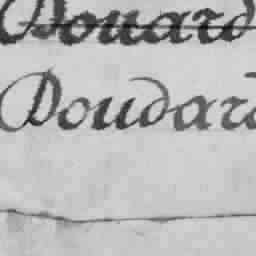 Douard
Doudard